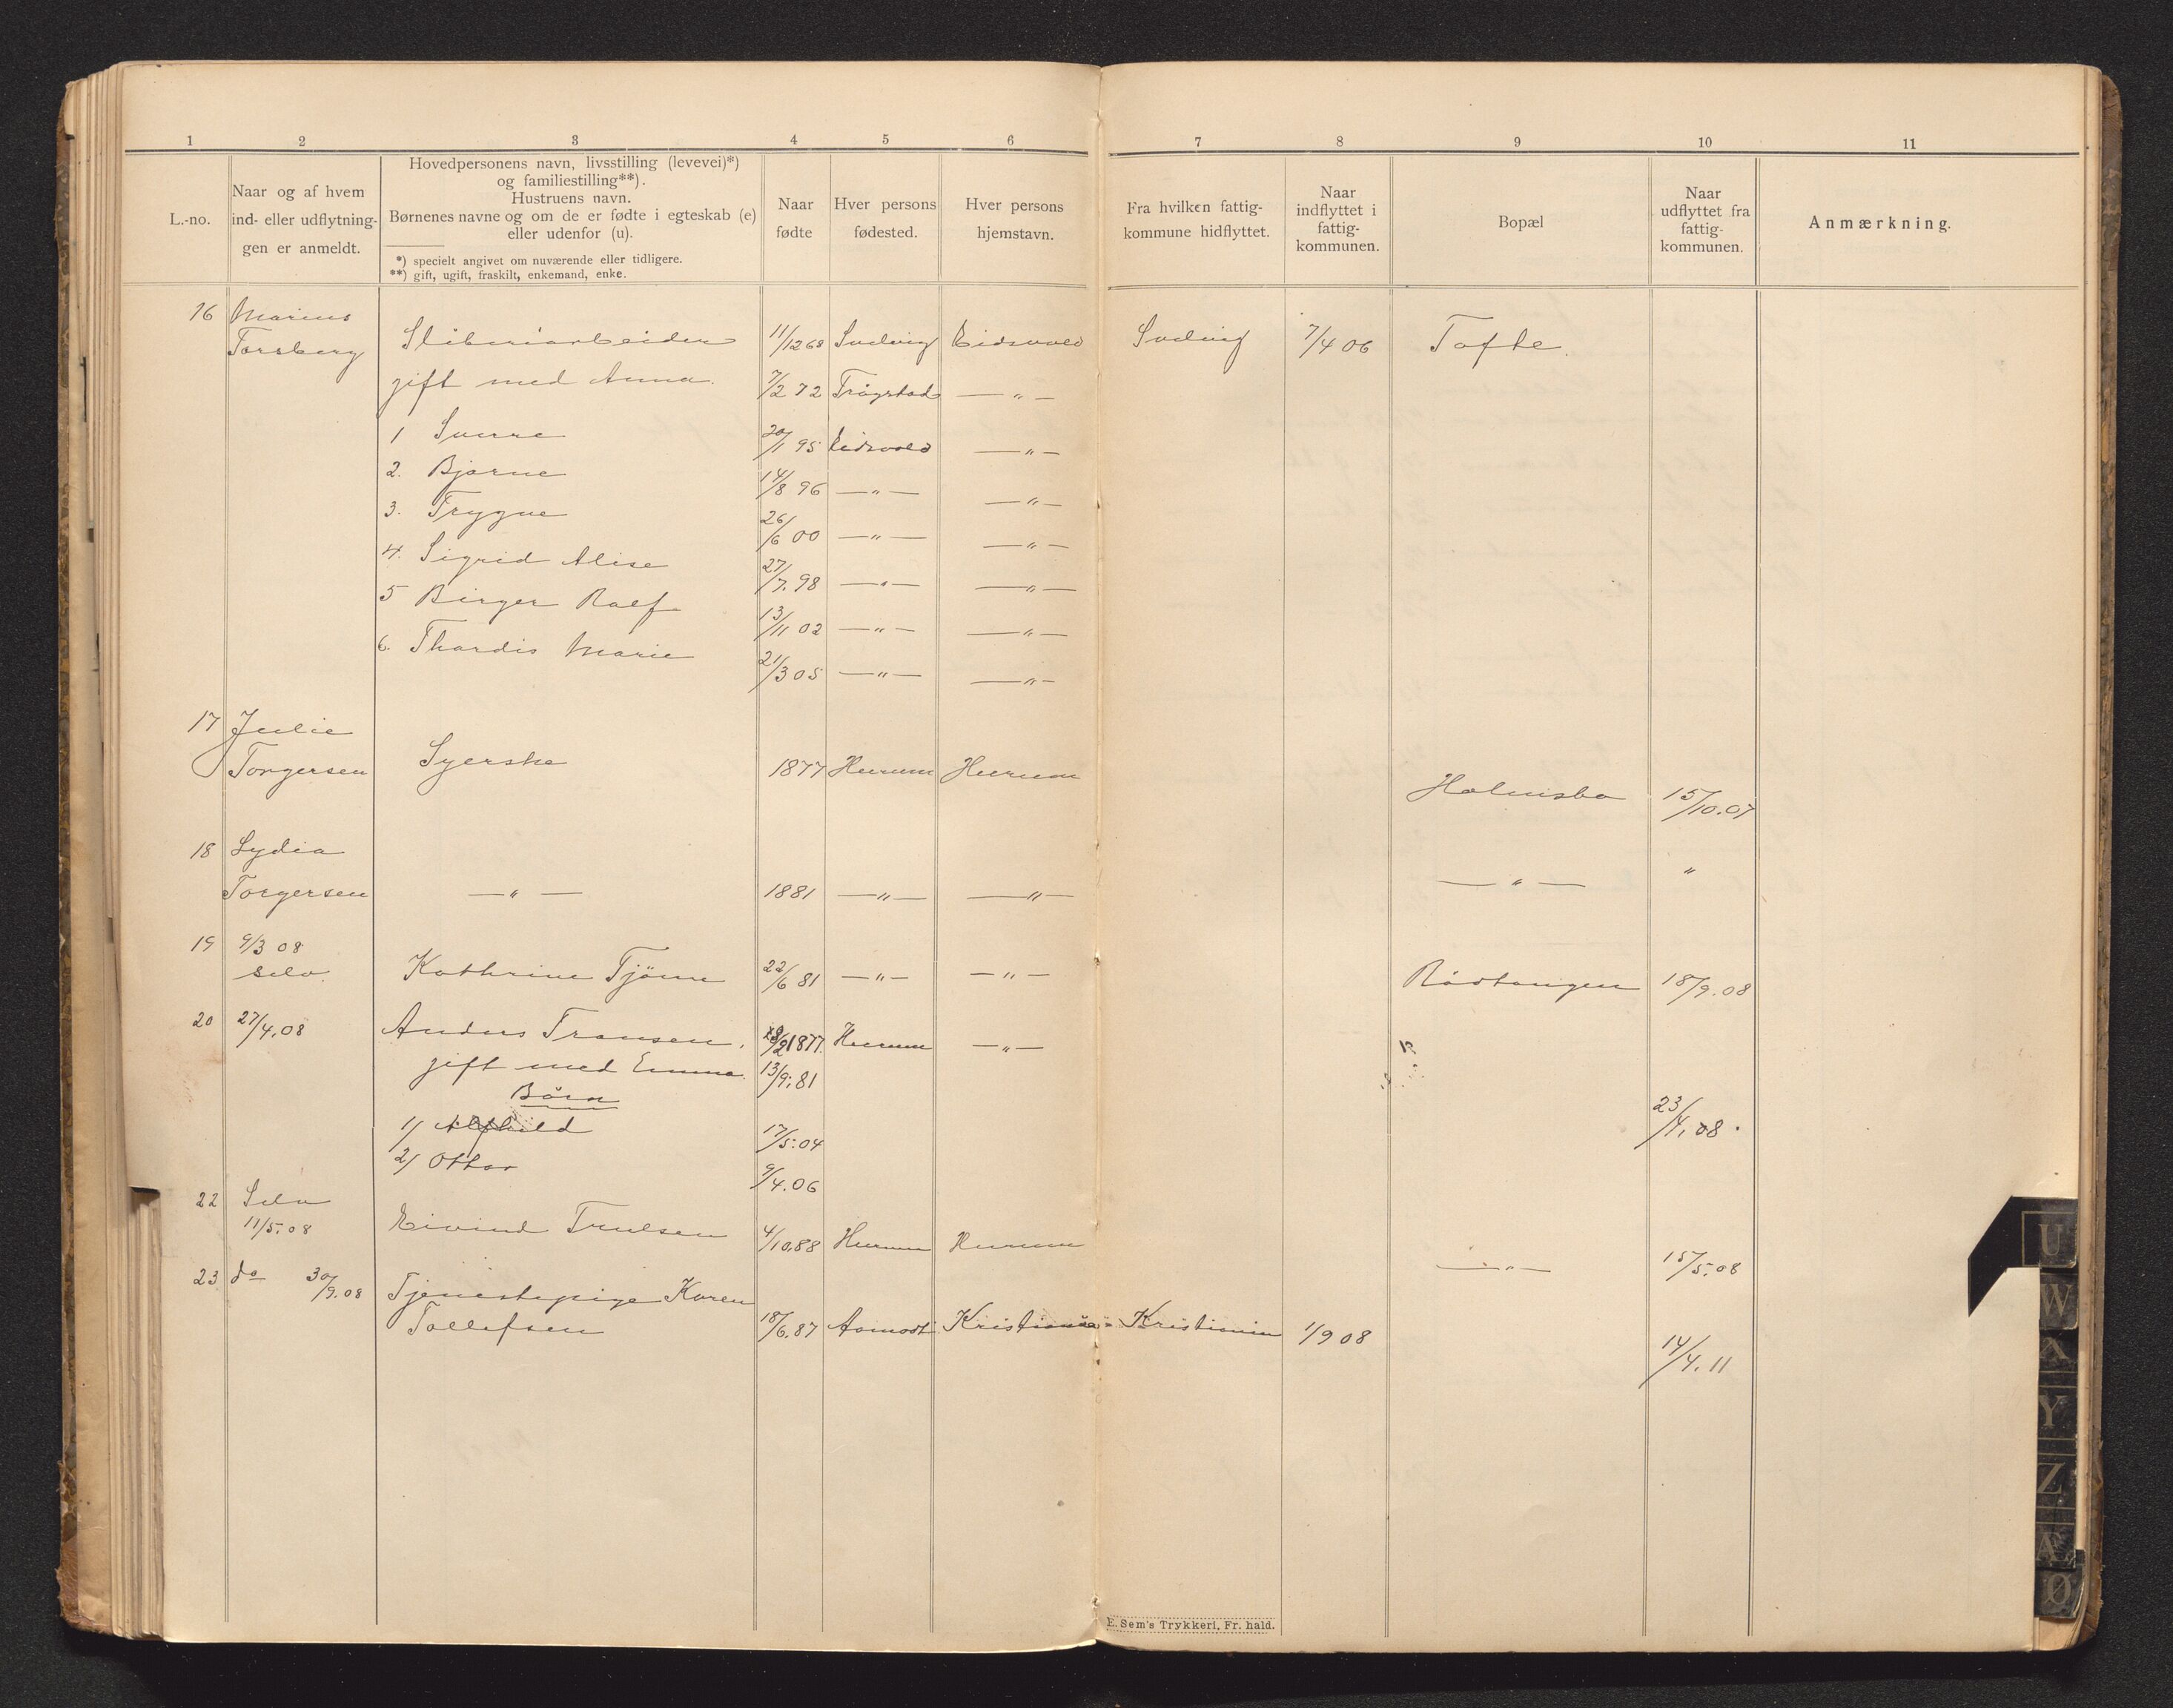 1 2 3 4 5 6 7 8 9 10 11
L.-no.
Naar og af hvem
ind- eller udflytnin-
gen er anmeldt.
Hovedpersonens navn, livsstilling (levevei)*)
og familiestilling**).
Hustruens navn.
Børnenes navne og om de er fødte i egteskab (e)
eller udenfor (u).
*) specielt angivet om nuværende eller tidligere.
**) gift, ugift, fraskilt, enkemand, enke.
Naar
fødte
Hver persons
fødested.
Hver persons
hjemstavn.
Fra hvilken fattig-
kommune hidflyttet.
Naar
indflyttet i
fattig-
kommunen.
Bopæl
Naar
udflyttet fra
fattig-
kommunen.
Anmærkning.
16 Marius
Torsberg Sliberiarbeider 11/12 68 Svelvig Eidsvold Svelvig 7/4 06 Tofte.
gift med Anna. 7/2 72 Trøgstad — " —
1 Sverre 20/1 95 Eidsvold — " —
2. Bjarne 14/8 96 — " — — " —
3. Trygve 26/6 00 — " — — " —
4. Sigrid Alise 27/7. 98 — " — — " —
5 Birger Ralf 13/11 02 — " — — " —
6. Thordis Marie 21/3 05 — " — — " —
17 Julie
Torgersen Syerske 1877 Hurum Hurum Holmsbo 15/10.07
18 Lydia
Torgersen — " — 1881 — " — — " — — " — "
19 9/3 08
selv. Kathrine Tjöme 22/6 81 — " — — " — Rödtangen 18/9.08
20 27/4.08 Anders Fransen, /2 1877. Hurum — " —
gift med Emma. 13/9. 81
Börn
1/ Alfhild 17/5. 04 23/4. 08.
2/ Ottar 9/4. 06
22 Selv
11/5.08 Eivind Trulsen 4/10.88 Hurum Hurum — " — 15/5.08
23 do 30/9.08 Tjenestepige Karen
Tollefsen 18/6.87 Asmodt Kristiania Kristiania 1/9 08 14/4. 11
E. Sem's Trykkeri, Fr. hald.
U
W
Y
Z
Æ
Ø